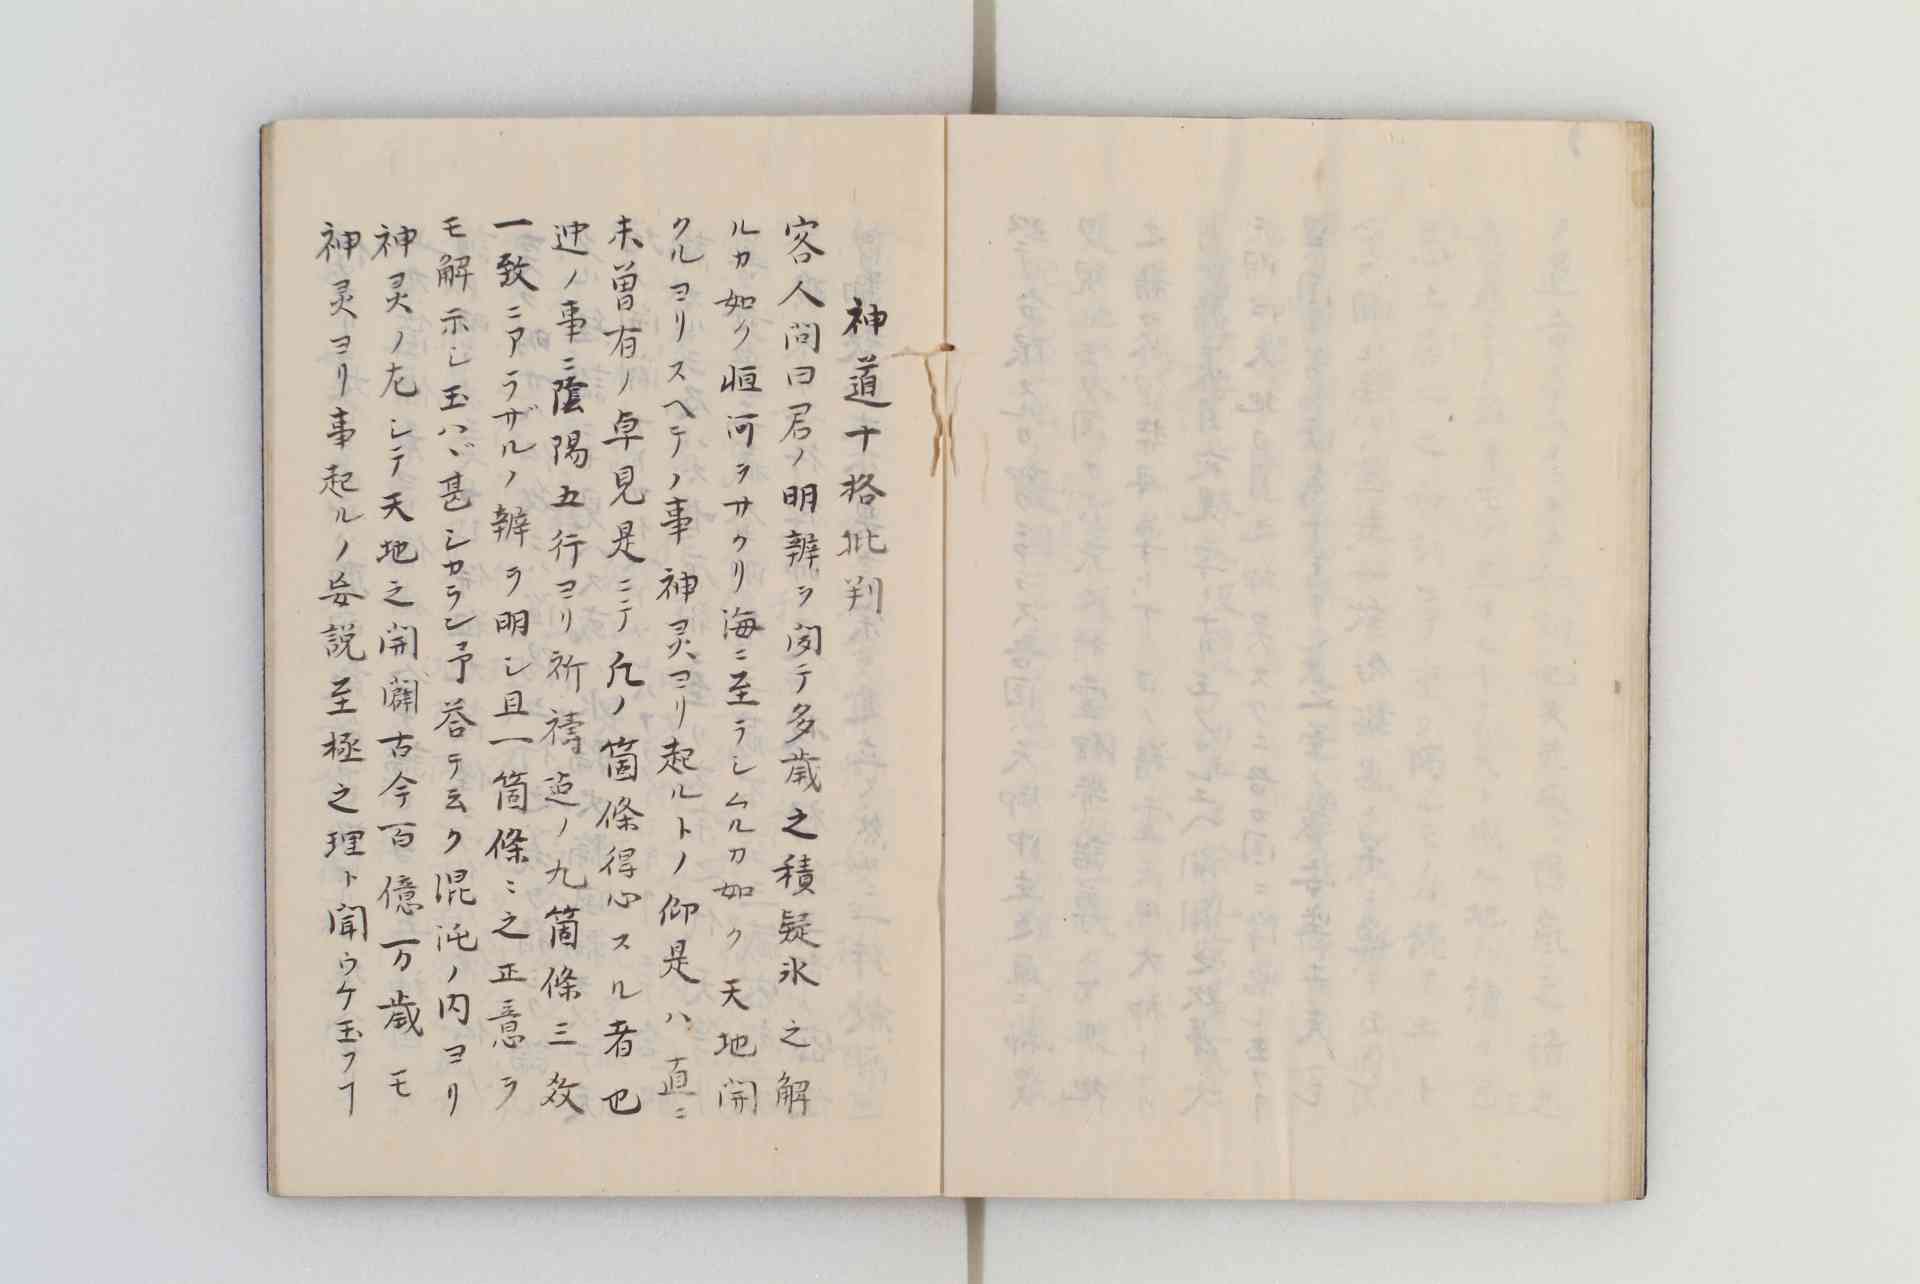 神道十格批判
客人問曰君ノ明辨ヲ聞テ多歳之積疑氷之解
ルカ如ク恒河ヲサクリ海ニ至ラシムルカ如ク天地開
クルヨリスヘテノ事神灵ヨリ起ルトノ仰是ハ直ニ
未曽有ノ卓見是ニテ凡ノ箇條得心スル者也
ノ事ニ陰陽五行ヨリ祈禱迠ノ九箇條三教
一致ニアラザルノ辨ヲ明シ且一箇條ニ之正意ヲ
モ解示シ玉ハヾ甚シカラン予荅テ云ク混沌ノ内ヨリ
神灵ノ左シテ天地之開闢古今百億一万歳モ
神灵ヨリ事起ルノ妄説至極之理ト聞ウケ玉フヿ